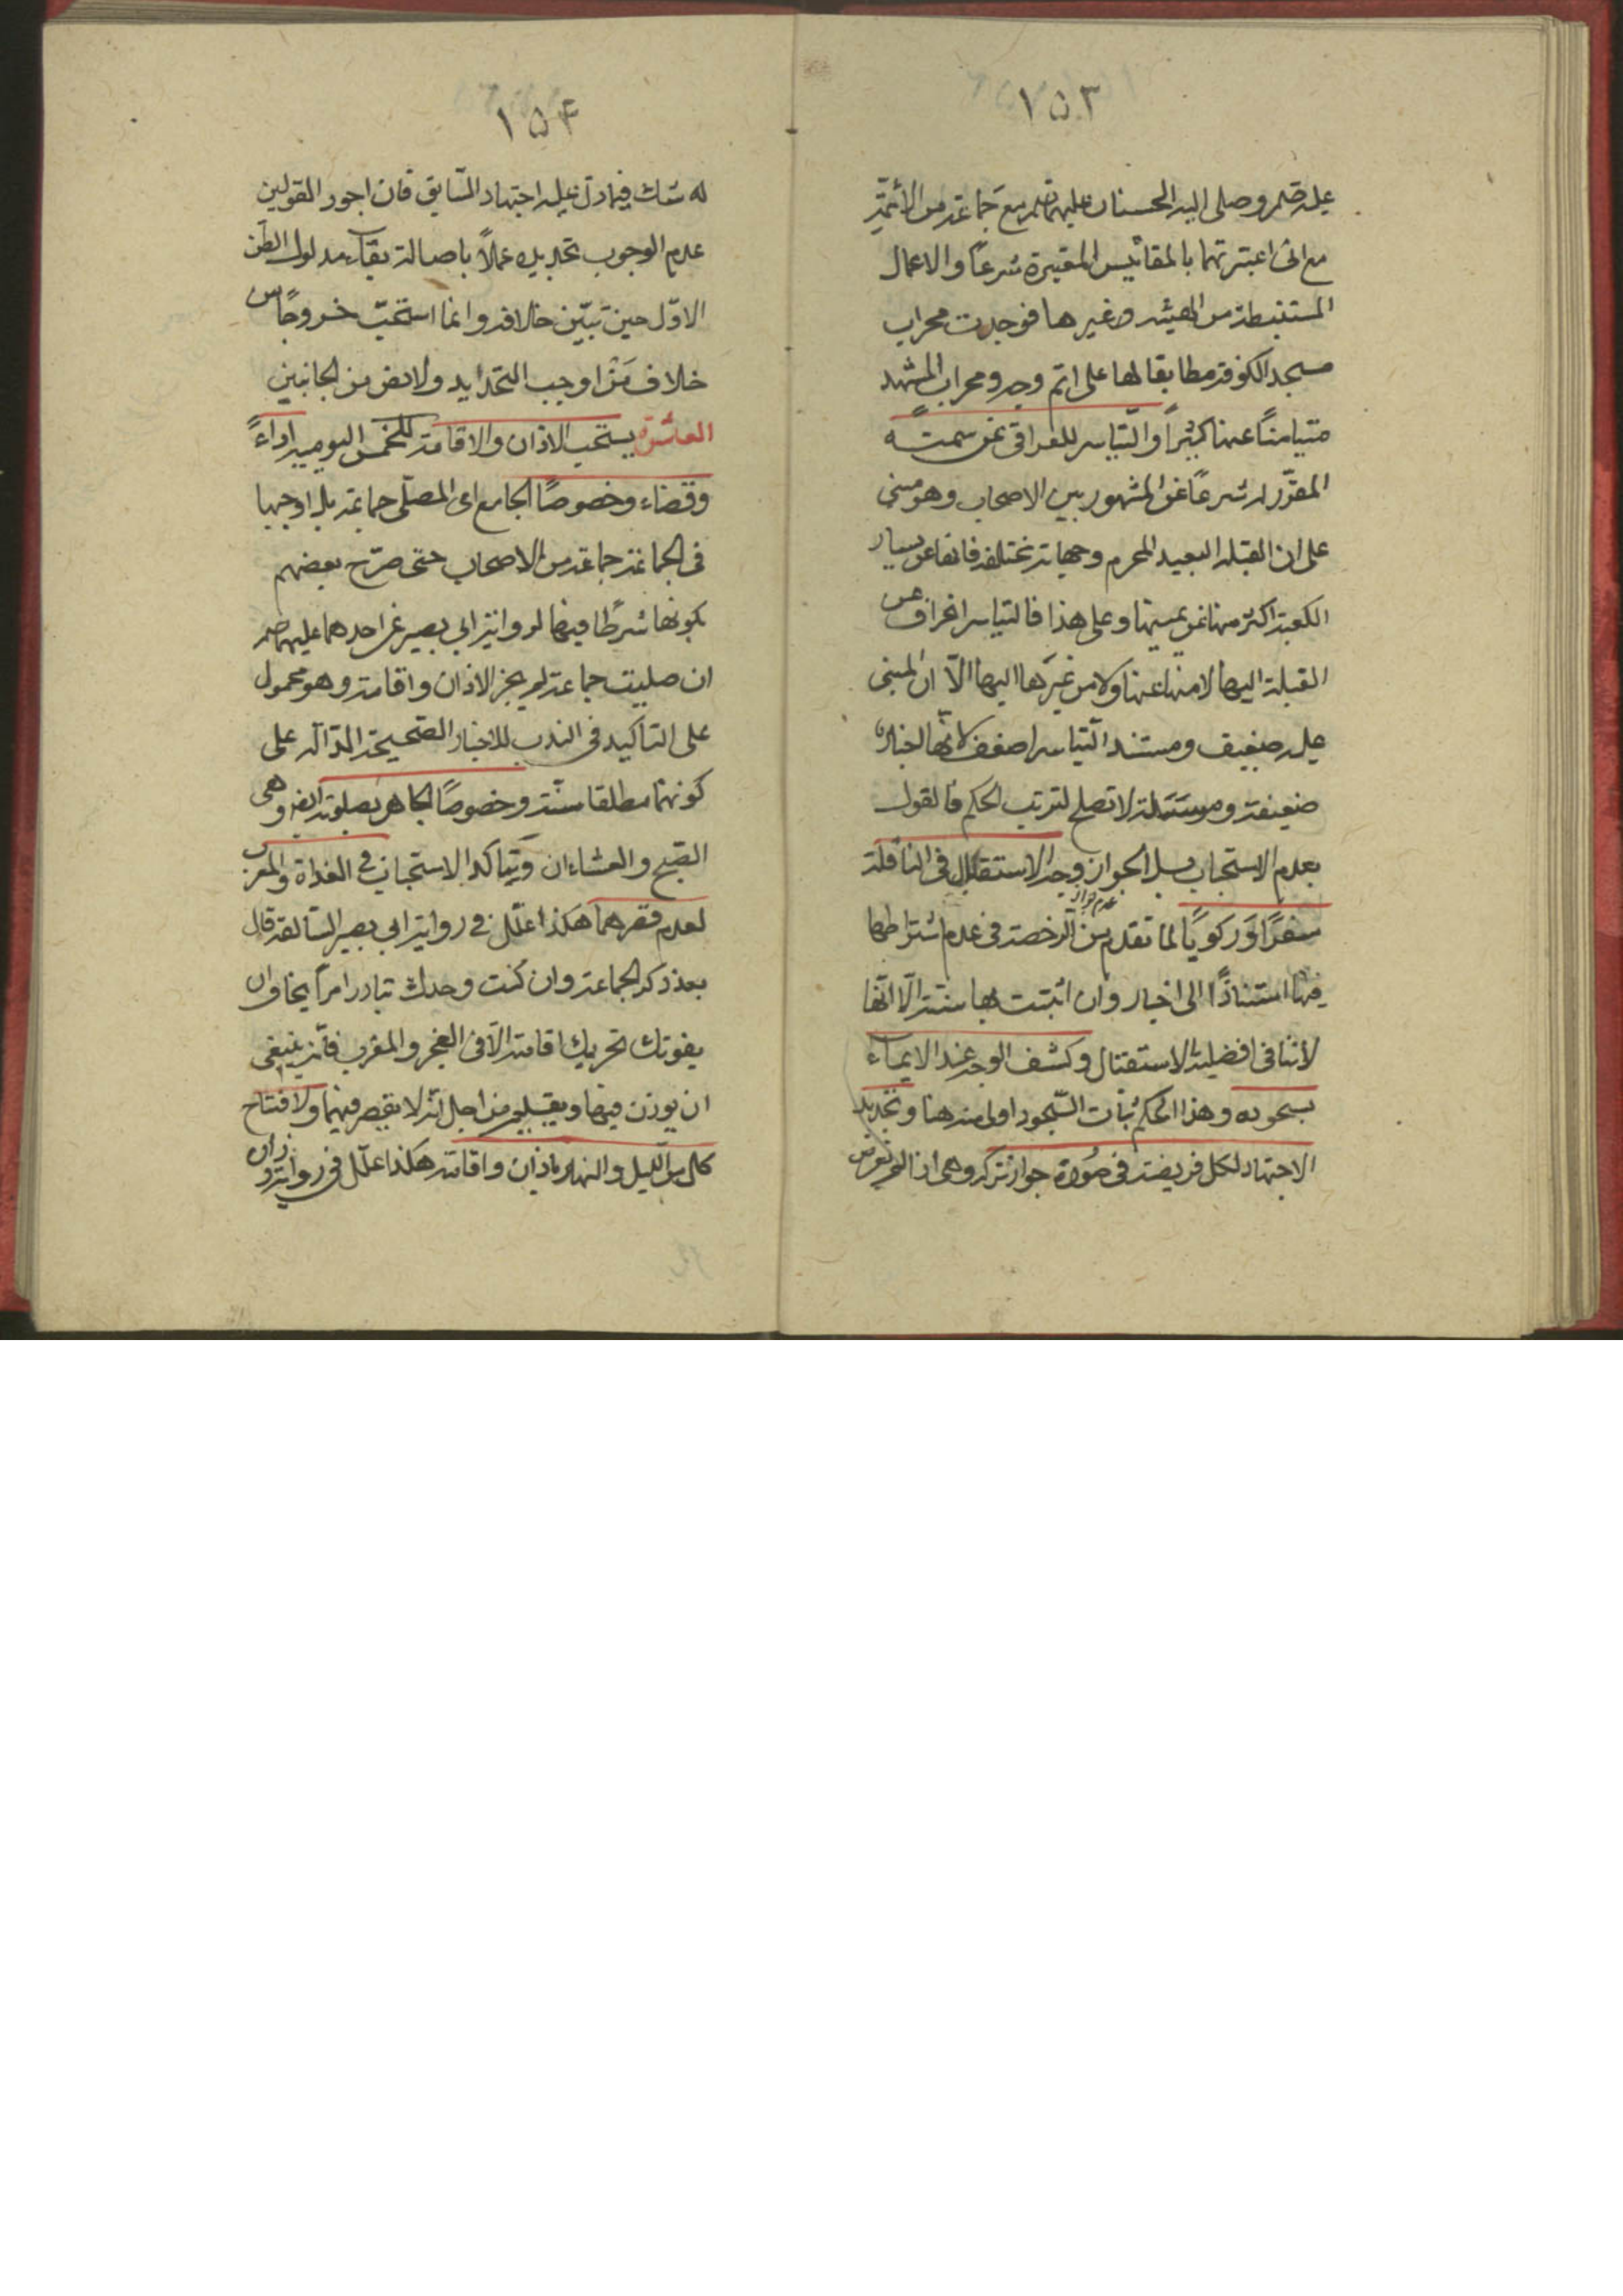 ١٥٣
عليه صلم وصلى اليه الحسنان عليهما صلم مع جماعة من الأئمة
مع انى اعتبرتهما بالمقائيس المعتبرة شرعًا والاعمال
المستنبطة من الهيئة وغيرها فوجدت محراب
مسجد الكوفة مطابقا لها على اتم وجه ومحراب المشهد
متيامنًا عنها كثيرًا والتياسر للعراقى عن سمته
المقرّر له شرعًا عن المشهور بين الاصحاب وهو مبنى
على ان القبلة البعيد الحرم وجهاته مختلفة فانها عن يسار
الكعبة اكثر منها عن يمينها وعلى هذا فالتياسر انحراف عن
القبلة اليها لا منها عنها ولا من غيرها اليها الّا ان المبنى
عليه ضعيف ومستند التياسر اضعف لانها اخباره
ضعيفة ومرسلة لا تصلح لترتب الحكم فالقول
بعدم الاستحباب بل الجواز وجه الاستقبال فى النافلة
سفرًا وَركوبًا لما تقدم من الرخصة فى عدم اشتراطها
عدم جواز
فيها استنادًا الى اخبار وان اثبتت بها سنته الّا انها
لا تنافى افضلية الاستقبال وكشف الوجه عند الايماء
بسجوده وهذا الحكم بذات السّجود اولى منه هنا وتجديد
الاجتهاد لكل فريضة فى صورة جواز تركه وهى اذا لم تعرض
١٥٤
له شك فيما دلّ عليه اجتهاد السّابق فان اجود القولين
عدم الوجوب تجديده عملًا باصالة بقاء مدلول الظن
الاوّل حين تبيّن خلافه وانما استحبّ خروجًا من
خلاف مَنْ اوجب التجديد ولا نص من الجانبين
العاشرة يستحب الاذان والاقامة للخمس اليومية اداءً
وقضاء وخصوصًا الجامع اى المصلّى جماعة بل اوجبها
فى الجماعة جماعة من الاصحاب حتى صرّح بعضهم
بكونها شرطًا فيها لرواية ابى بصير عن احدهما عليهما صلم
ان صليت جماعة لم يجز الاذان واقامة وهو محمول
على التاكيد فى الندب للاخبار الصّحيحة الدّالّة على
كونهما مطلقا سنّة وخصوصًا الجاهر بصلوته ايضا وهى
الصّبح والعشاءان ويتاكد الاستحباب فى الغداة والمغرب
لعدم قصرهما هكذا علّل فى رواية ابى بصير السّالفة قال
بعد ذكر الجماعة وان كنت وحدك تبادر امرًا يخاف ان
يفوتك تجزيك اقامة الّا فى الفجر والمغرب فانّه ينبغى
ان يوذن فيها ويقيم من اجل انّه لا يقصر فيهما ولافتتاح
كل من الليل والنهار باذان واقامة هكذا علّل فى رواية زران